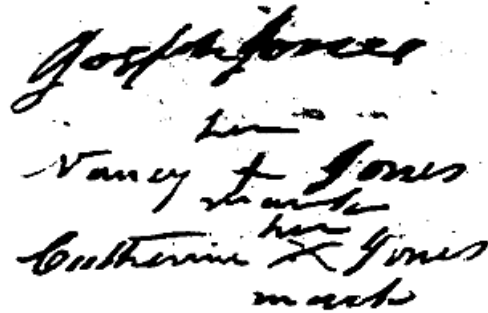 Joseph Jones
her
Nancy + Jones
mark
her
Catherine X Jones
mark